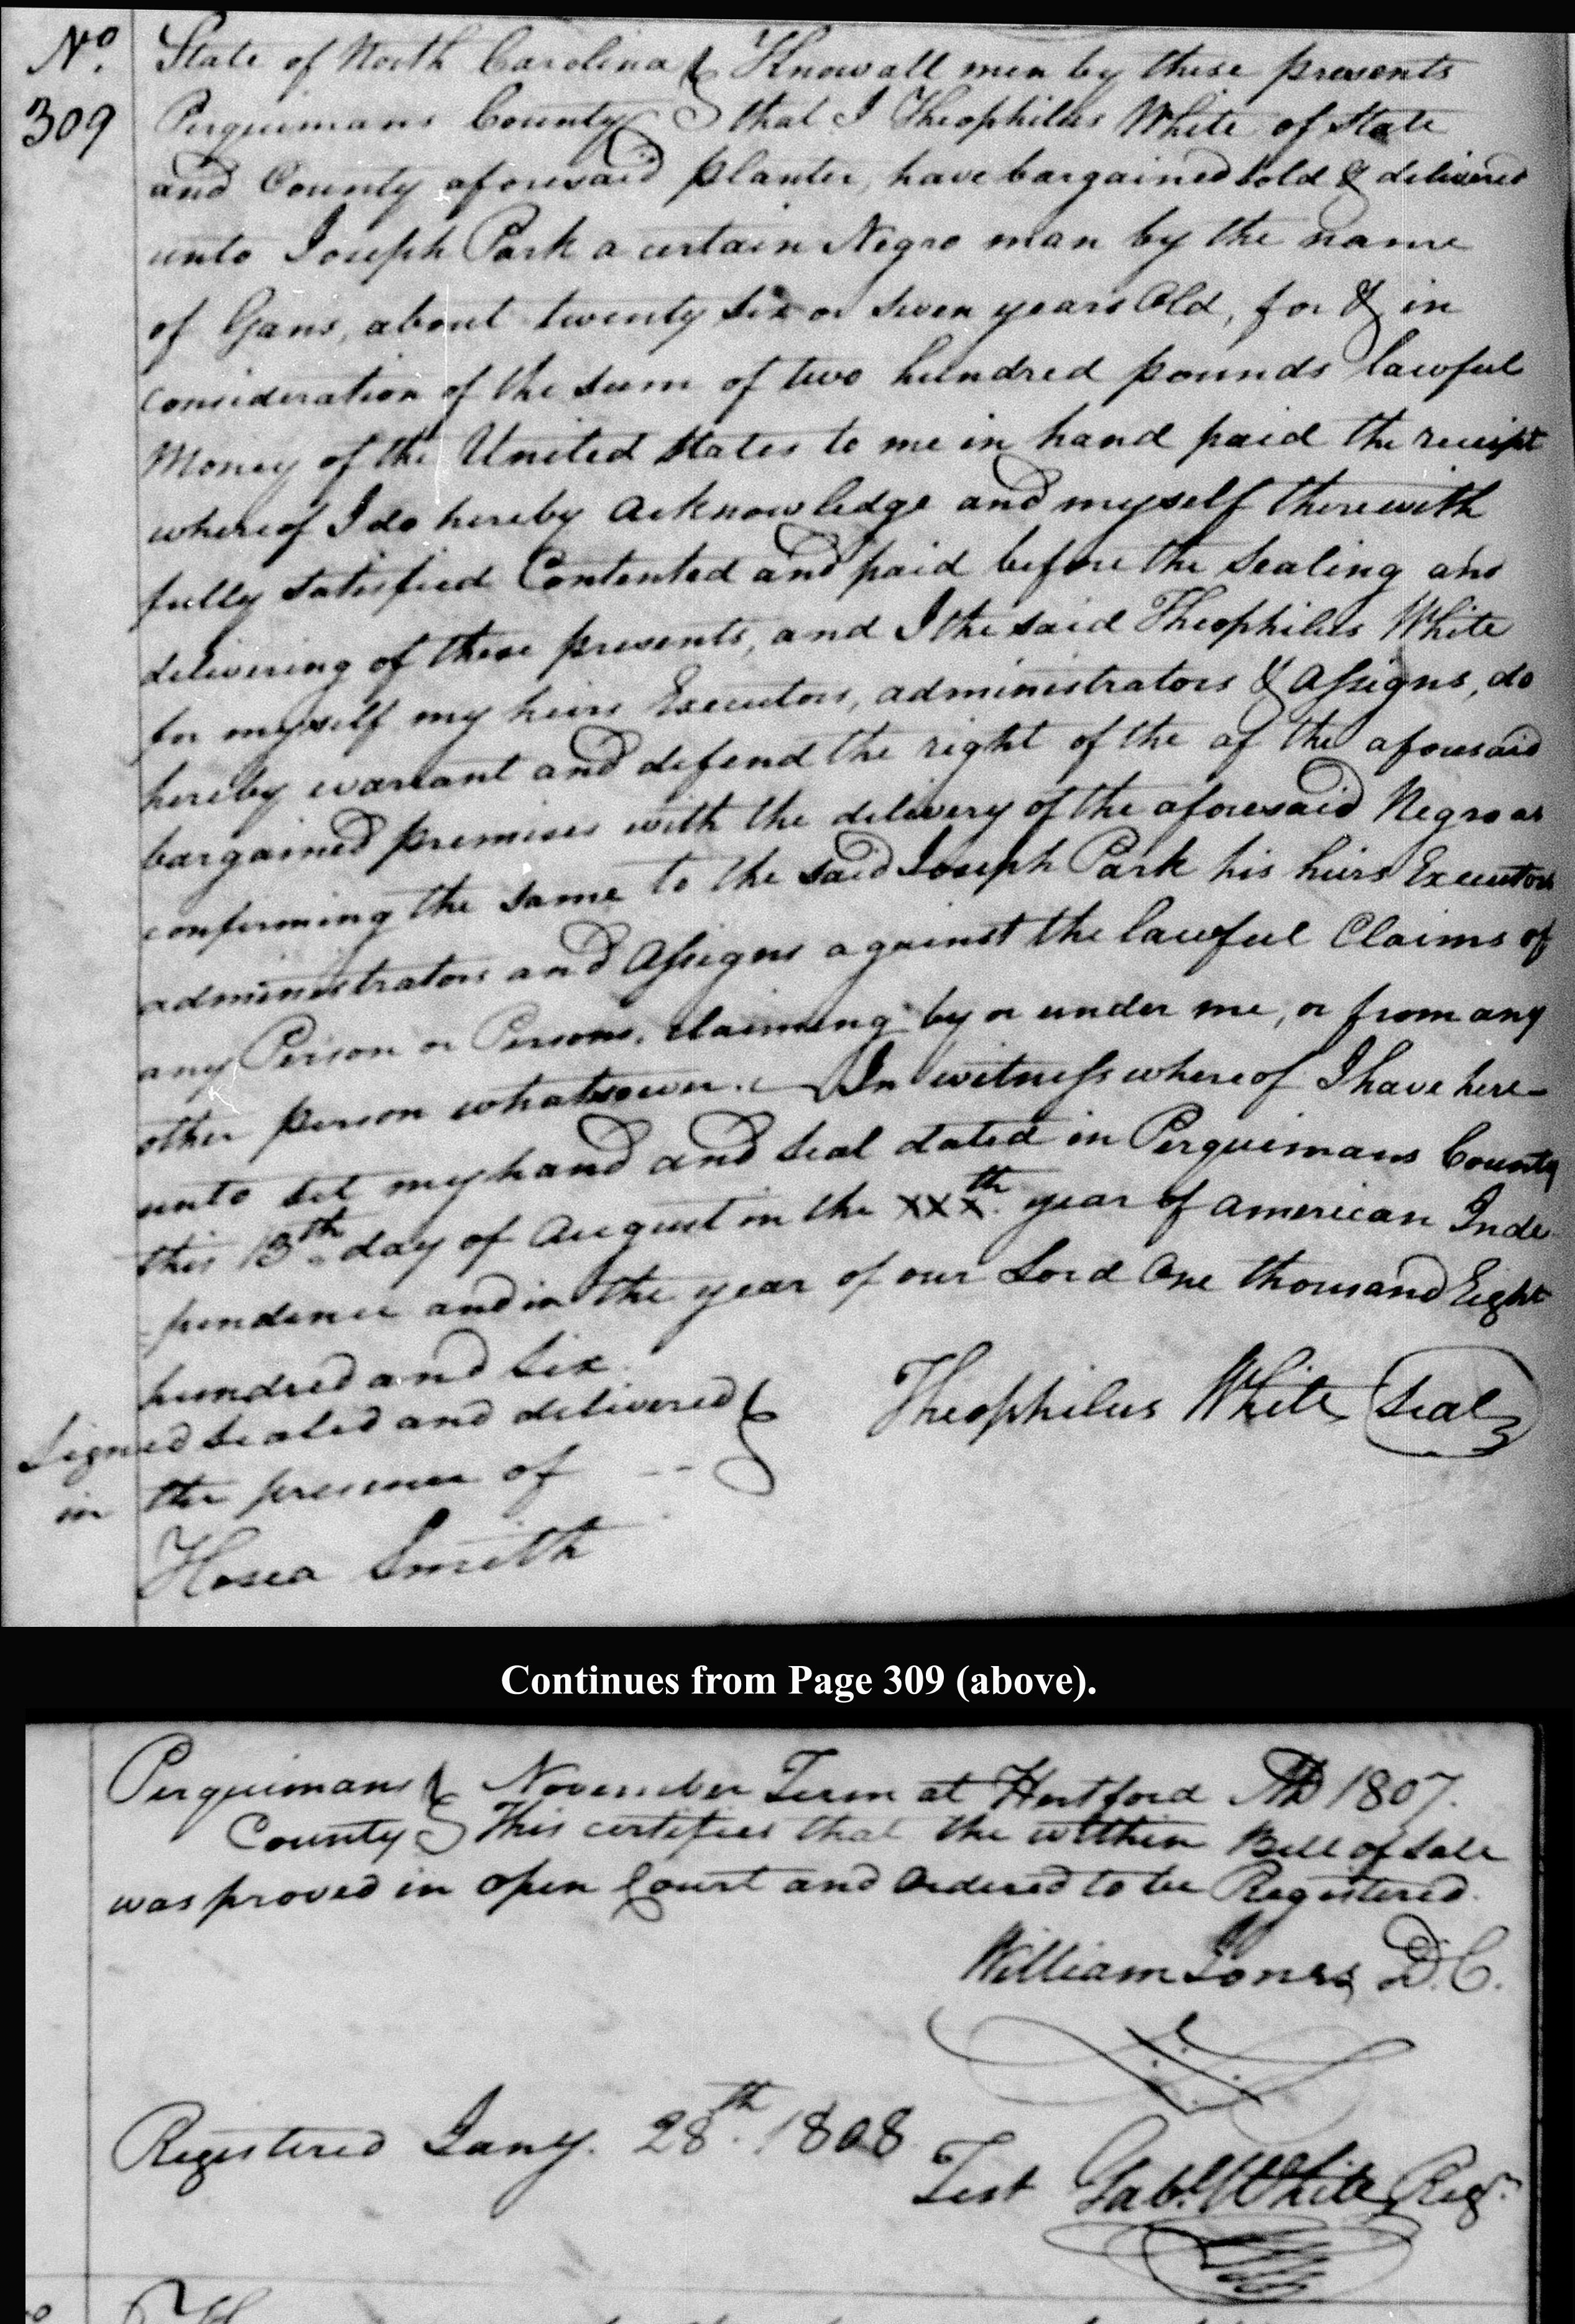 No. State of North Carolina } Know all men by these presents
309 Perquimans County } that I Theophilus White of State
and County aforesaid planter, have bargained sold & delivered
unto Joseph Park a certain Negro man by the name
of Gans, about twenty six or seven years Old, for & in
consideration of the sum of two hundred pounds lawful
Money of the United States to me in hand paid the receipt
whereof I do hereby acknowledge and myself therewith
fully satisfied Contented and paid before the sealing and
delivering of these presents, and I the said Theophilus White
for myself my heirs Executors, administrators & Assigns, do
hereby warrant and defend the right of the of the aforesaid
bargained premises with the delivery of the aforesaid Negro as
confirming the same to the said Joseph Park his heirs Executors
administrators and Assigns against the lawful Claims of
any Person or Persons, claiming by or under me, or from any
other person whatsoever. — In witness whereof I have here-
unto set my hand and seal dated in Perquimans County
this 13th day of August in the XXXth year of American Inde
-pendence and in the year of our Lord One thousand Eight
hundred and six.
Signed sealed and delivered } Theophilus White Seal
in the presence of -- }
Hosea Smith
Continues from Page 309 (above).
Perquimans } November Term at Hertford AD 1807.
County } This certifies that the within Bill of Sale
was proved in open Court and Ordered to be Registered.
William Jones, D.C.
Registered Jany. 28th. 1808
Test Gabl. White, Regr.